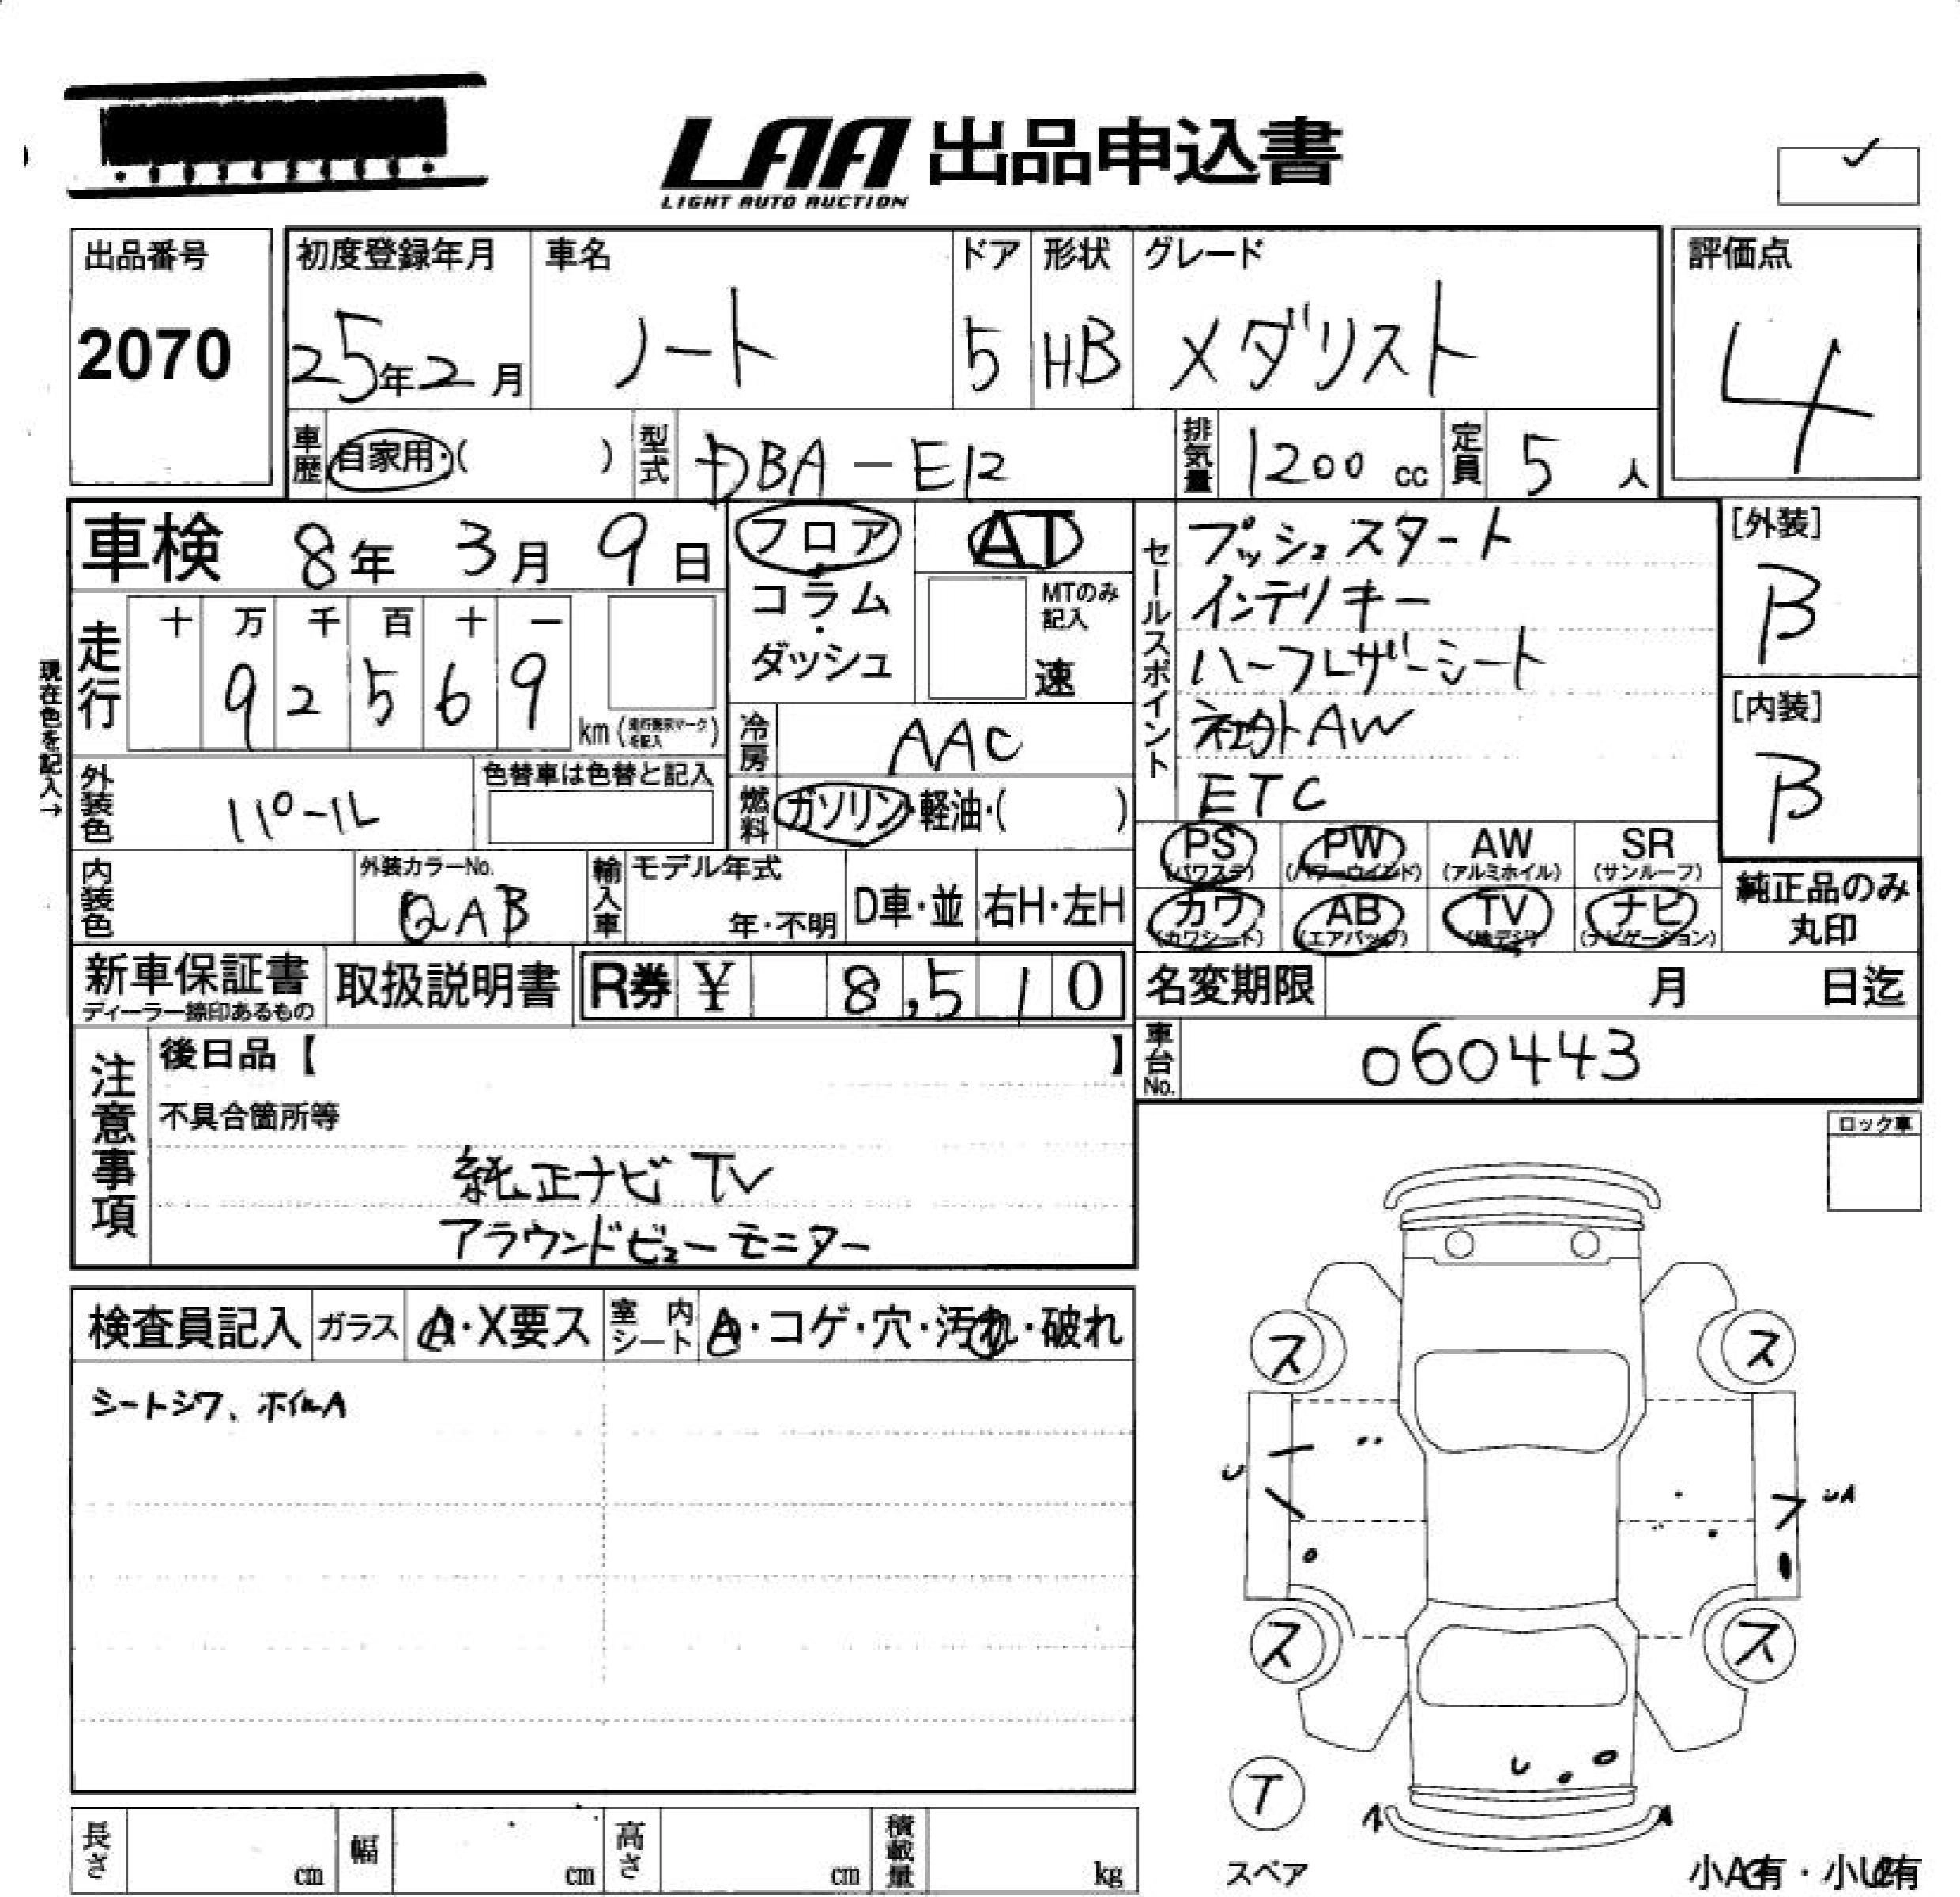 LAA 出品申込書
LIGHT AUTO AUCTION
出品番号
2070
初度登録年月
25年2月
車名
ノート
ドア
5
形状
HB
グレード
メダリスト
評価点
4
車歴 自家用・( )
型式 DBA-E12
排気量 1200 cc
定員 5 人
車検 8年 3月 9日
走行
十 万 千 百 十 一
9 2 5 6 9
km (走行表示マークを記入)
現在色を記入→
外装色 パール
色替車は色替と記入
フロア
コラム
・
ダッシュ
AT
MTのみ
記入
速
冷房 AAC
燃料 ガソリン・軽油・( )
セールスポイント
プッシュスタート
インテリキー
ハーフレザーシート
社外AW
ETC
[外装]
B
[内装]
B
内装色
外装カラーNo.
QAB
輸入車
モデル年式
年・不明
D車・並
右H・左H
PS
(パワステ)
PW
(パワーウインド)
AW
(アルミホイル)
SR
(サンルーフ)
カワ
(カワシート)
AB
(エアバッグ)
TV
(地デジ)
ナビ
(ナビゲーション)
純正品のみ
丸印
新車保証書
ディーラー捺印あるもの
取扱説明書
R券 ¥ 8,510
名変期限 月 日迄
車台No. 060443
注意事項
後日品【 】
不具合箇所等
純正ナビ TV
アラウンドビューモニター
ロック車
検査員記入
ガラス A・X要ス
室内シート A・コゲ・穴・汚れ・破れ
シートシワ、ホイルA
ス
ス
U
UA
ス
ス
U
T
スペア
A
A
長さ cm
幅 cm
高さ cm
積載量 kg
小A有・小U有